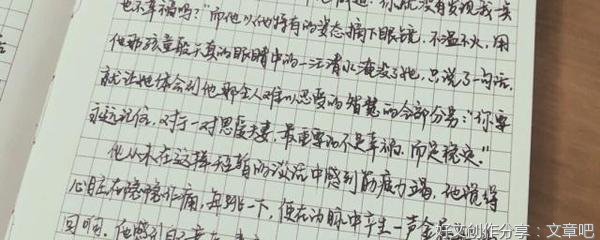 也不幸福吗？”而他以他特有的姿态摘下眼镜，不温不火，用
他那孩童般天真的眼睛中的一汪清水淹没了她，只说了一句话，
就让她体会到他那令人难以忍受的智慧的全部分量：“你要
永远记住，对于一对恩爱夫妻，最重要的不是幸福，而是稳定。”
他从未在这样短暂的谈话中感到筋疲力竭，他觉得
心脏在隐隐作痛，每跳一下，便在动脉中产生一声金属
回响。
好文创作分享：文章吧